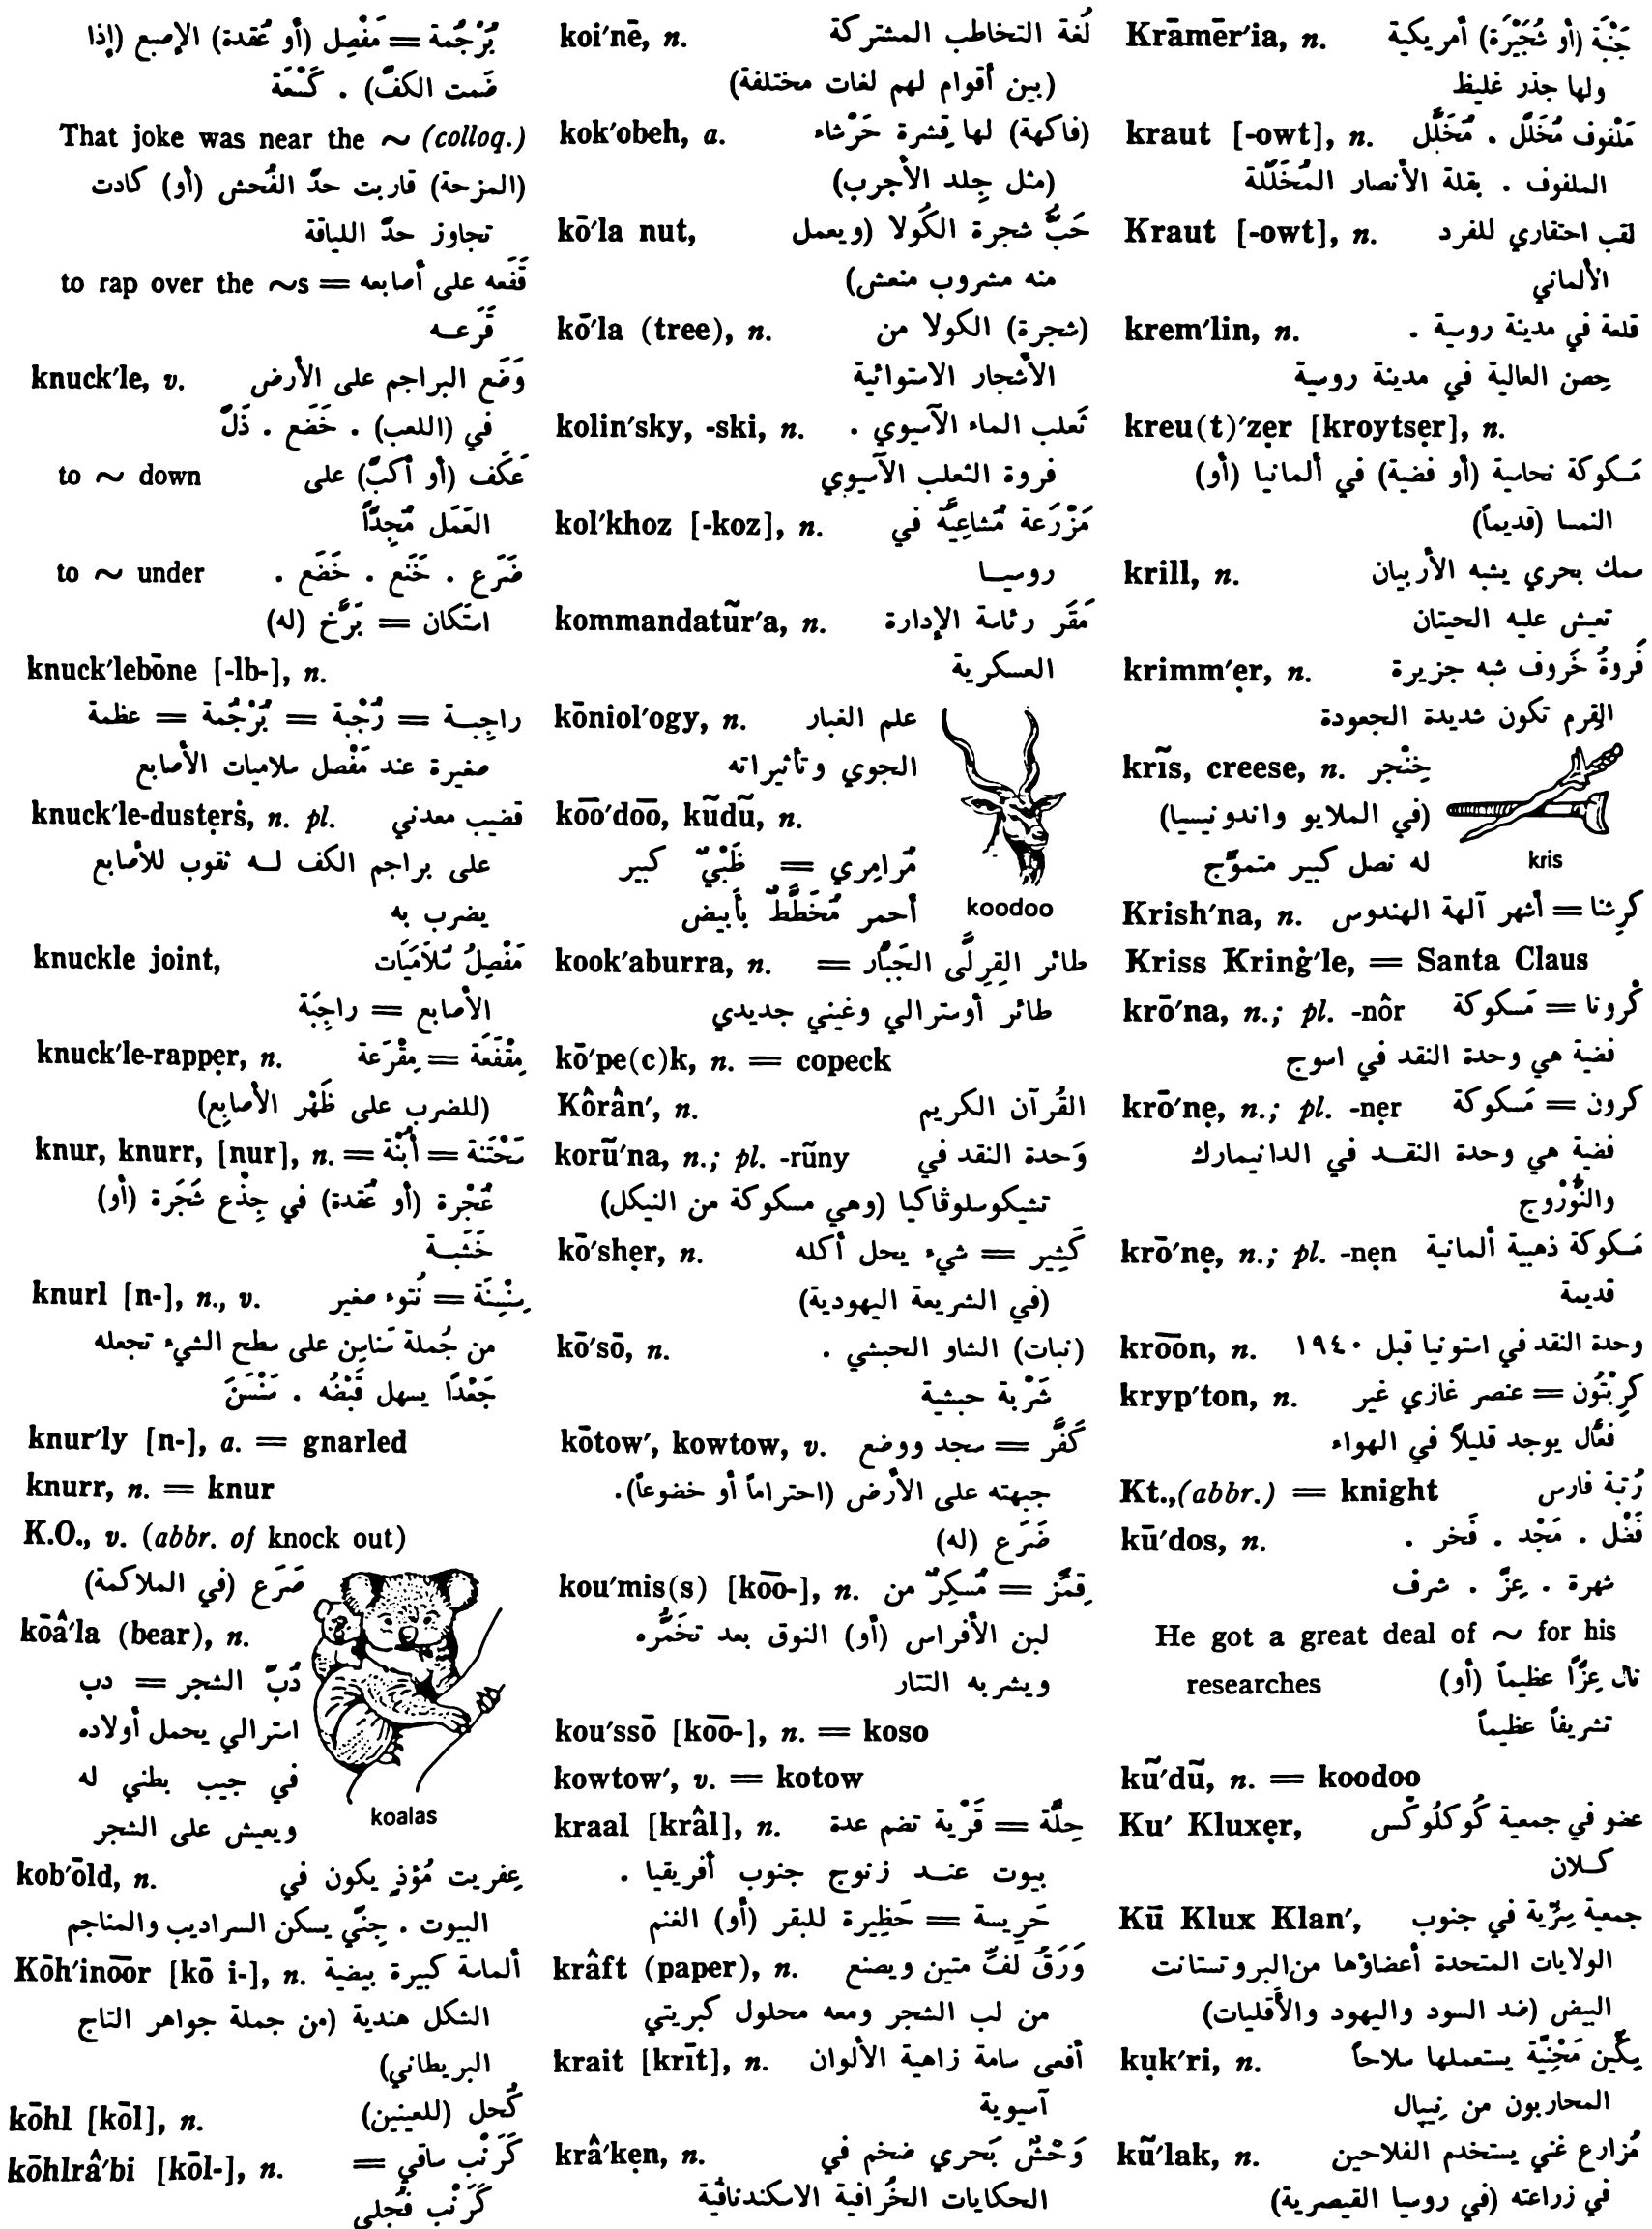 بُرْجُمة = مَفْصِل (أو عُقدة) الإصبع (إذا
ضَمت الكفّ) . كَسْعَة
That joke was near the ~ (colloq.)
(المزحة) قاربت حدَّ الفُحش (أو) كادت
تجاوز حدَّ اللياقة
to rap over the ~s = قَفَعه على أصابعه
قَرَعـه
knuck′le, v. وَضَع البراجم على الأرض
في (اللعب) . خَضَع . ذَلّ
to ~ down عَكَف (أو أكبّ) على
العَمَل مُجِدّاً
to ~ under ضَرَع . خَنَع . خَضَع .
استَكان = بَرَّخ (له)
knuck′lebōne [-lb-], n.
راجِبـة = رُجْبة = بُرْجُمة = عظمة
صغيرة عند مَفْصل سلاميات الأصابع
knuck′le-dusterṡ, n. pl. قضيب معدني
على براجم الكف لـه ثقوب للأصابع
يضرب به
knuckle joint, مَفْصِلُ سُلاَمَيَات
الأصابع = راجِبَة
knuck′le-rapper, n. مِقْفَعَة = مِقْرَعة
(للضرب على ظَهْر الأصابِع)
knur, knurr, [nur], n. سَخْتَنة = أُبْنَة =
عُجْرة (أو عُقدة) في جِذْع شَجَرة (أو)
خَشَبـة
knurl [n-], n., v. سِنْسِنَة = نُتوء صغير
من جُملة سَناسِن على سطح الشيء تجعله
جَعْدًا يسهل قَبْضُه . سَنْسَنَ
knur′ly [n-], a. = gnarled
knurr, n. = knur
K.O., v. (abbr. of knock out)
صَرَع (في الملاكمة)
kōâ′la (bear), n.
دُبّ الشجر = دب
استرالي يحمل أولاده
في جيب بطني له
ويعيش على الشجر
koalas
kob′ōld, n. عِفريت مُؤذٍ يكون في
البيوت . جِنّي يسكن السراديب والمناجم
Kōh′inōōr [kō i-], n. ألماسة كبيرة بيضية
الشكل هندية (من جملة جواهر التاج
البريطاني)
kōhl [kōl], n. كُحل (للعينين)
kōhlrâ′bi [kōl-], n. كَرَنْب ساقي =
كَرَنْب فُجلي
koi′nē, n. لُغة التخاطب المشتركة
(بين أقوام لهم لغات مختلفة)
kok′obeh, a. (فاكهة) لها قِشرة حَرْشاء
(مثل جِلد الأجرب)
kō′la nut, حَبُّ شجرة الكُولا (ويعمل
منه مشروب منعش)
kō′la (tree), n. (شجرة) الكولا من
الأشجار الاستوائية
kolin′sky, -ski, n. ثَعلب الماء الآسيوي .
فروة الثعلب الآسيوي
kol′khoz [-koz], n. مَزْرَعة مُشاعِيَّة في
روسيـا
kommandatũr′a, n. مَقَر رئاسة الإدارة
العسكرية
kōniol′ogy, n. علم الغبار
الجوي وتأثيراته
kōō′dōō, kũdũ, n.
مُرامِري = ظَبْيٌ كبير
أحمر مُخَطَّطٌ بأَبيض
koodoo
kook′aburra, n. طائر القِرِلَّى الجَبَّار =
طائر أوسترالي وغيني جديدي
kō′pe(c)k, n. = copeck
Kôrân′, n. القُرآن الكريم
korũ′na, n.; pl. -rũny وَحدة النقد في
تشيكوسلوڤاكيا (وهي مسكوكة من النيكل)
kō′shẹr, n. كَشِير = شيء يحل أكله
(في الشريعة اليهودية)
kō′sō, n. (نبات) الشاو الحبشي .
شَرْبة حبشية
kōtow′, kowtow, v. كَفَّر = سجد ووضع
جبهته على الأرض (احتراماً أو خضوعاً).
ضَرَع (له)
kou′mis(s) [kōō-], n. قِمَّز = مُسكِرٌ من
لبن الأفراس (أو) النوق بعد تخَمُّره
ويشربه التتار
kou′ssō [kōō-], n. = koso
kowtow′, v. = kotow
kraal [krâl], n. حِلَّة = قَرْية تضم عدة
بيوت عنـد زنوج جنوب أفريقيا .
حَرِيسة = حَظِيرة للبقر (أو) الغنم
krâft (paper), n. وَرَقُ لفٍّ متين ويصنع
من لب الشجر ومعه محلول كبريتي
krait [krīt], n. أفعى سامة زاهية الألوان
آسيوية
krâ′kẹn, n. وَحْشٌ بَحري ضخم في
الحكايات الخُرافية الاسكندنافية
Krāmēr′ia, n. جَنْبَة (أو شُجَيْرَة) أمريكية
ولها جذر غليظ
kraut [-owt], n. مَلْفوف مُخَلَّل . مُخَلَّل
الملفوف . بقلة الأنصار المُخَلَّلة
Kraut [-owt], n. لقب احتقاري للفرد
الألماني
krem′lin, n. قلعة في مدينة روسية .
حِصن العالية في مدينة روسية
kreu(t)′zẹr [kroytsẹr], n.
مَسكوكة نحاسية (أو فضية) في ألمانيا (أو)
النمسا (قديماً)
krill, n. سمك بحري يشبه الأربيان
تعيش عليه الحيتان
krimm′ẹr, n. فَروةُ خَروف شبه جزيرة
القِرم تكون شديدة الجعودة
krĩs, creese, n. خِنْجر
(في الملايو واندونيسيا)
له نصل كبير متموّج
kris
Krish′na, n. كرِشنا = أشهر آلهة الهندوس
Kriss Kring′le, = Santa Claus
krō′na, n.; pl. -nôr كْرونا = مَسكوكة
فضية هي وحدة النقد في اسوج
krō′nẹ, n.; pl. -nẹr كرون = مَسكوكة
فضية هي وحدة النقـد في الدانيمارك
والنُّوْرْوج
krō′nẹ, n.; pl. -nẹn مَسكوكة ذهبية ألمانية
قديمة
krōōn, n. وحدة النقد في استونيا قبل ١٩٤٠
kryp′ton, n. كرِبْتُون = عنصر غازي غير
فعَّال يوجد قليلاً في الهواء
Kt.,(abbr.) = knight رُتبة فارس
kū′dos, n. فَضْل . مَجْد . فَخر .
شهرة . عِزّ . شرف
He got a great deal of ~ for his
researches نال عِزَّاً عظيماً (أو)
تشريفاً عظيماً
kũ′dũ, n. = koodoo
Ku′ Kluxẹr, عضو في جمعية كُوكلُوكْس
كـلان
Kū Klux Klan′, جمعية سِرِّية في جنوب
الولايات المتحدة أعضاؤها من البروتستانت
البيض (ضد السود واليهود والأقليات)
kụk′ri, n. سِكِّين مَحْنِيَّة يستعملها سلاحاً
المحاربون من نِيبال
kũ′lak, n. مُزارع غني يستخدم الفلاحين
في زراعته (في روسيا القيصرية)